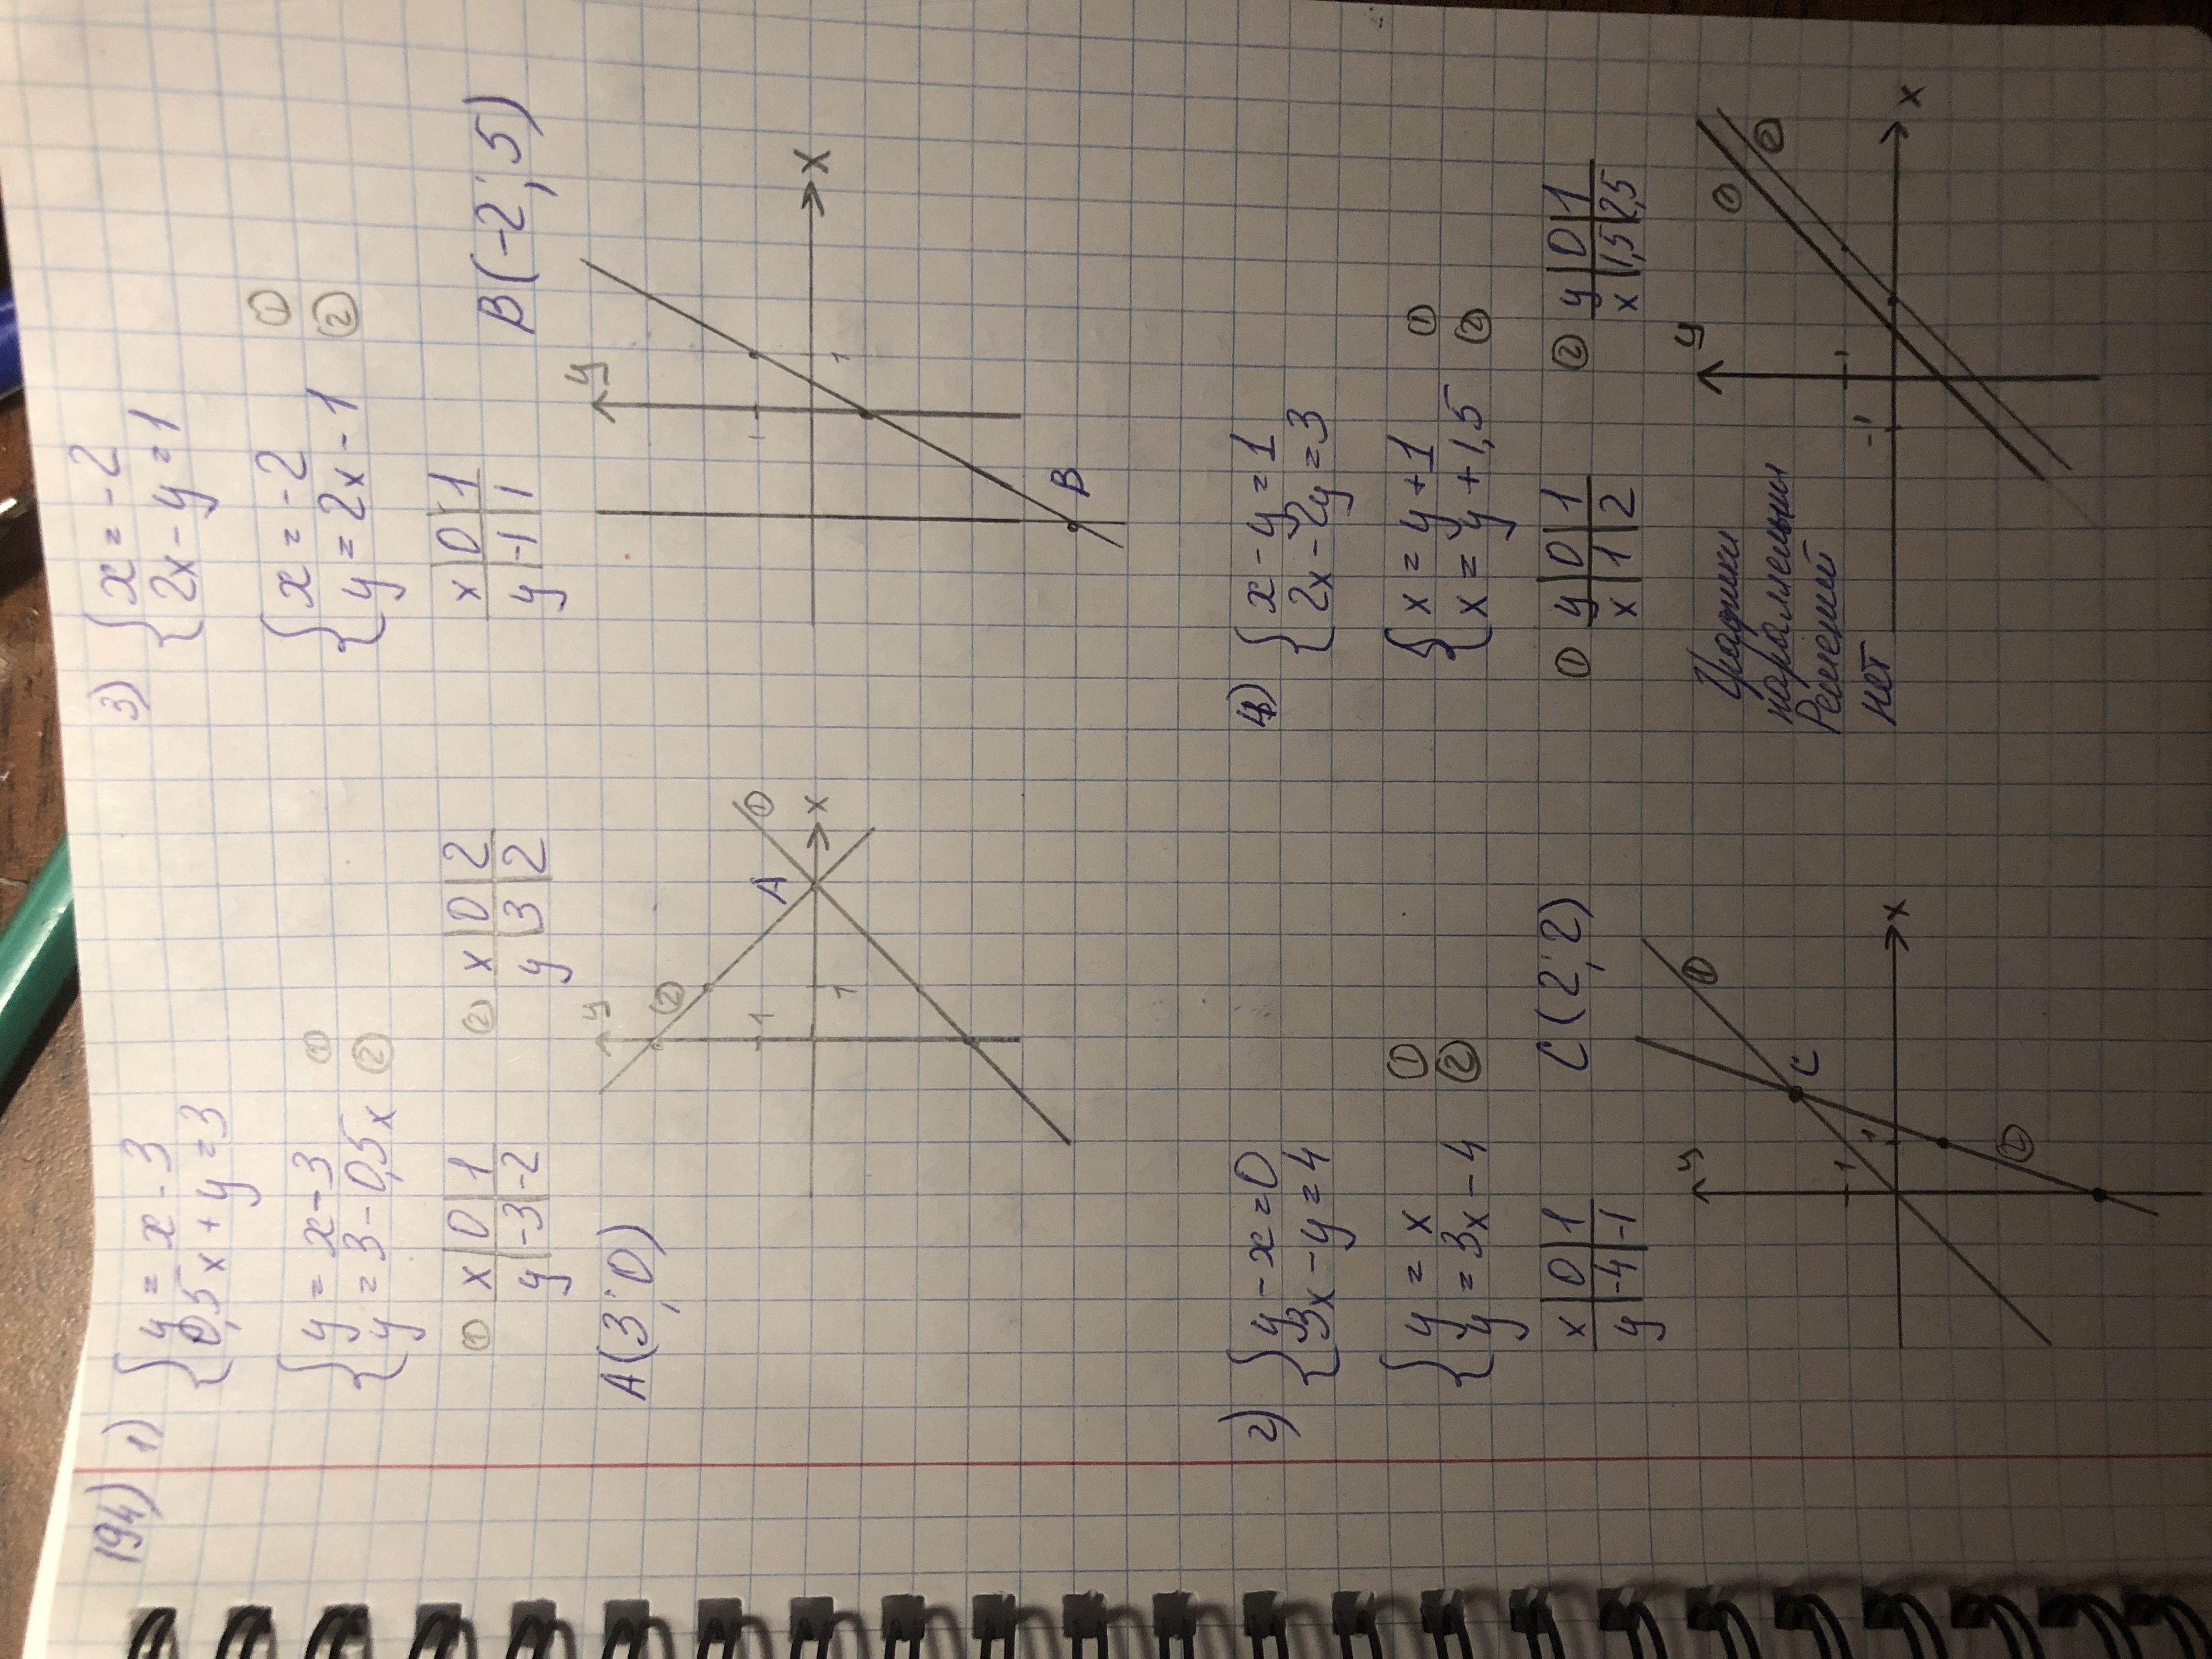 194) 1) { y = x - 3
0,5x + y = 3
{ y = x - 3 ①
y = 3 - 0,5x ②
① x | 0 | 1
y | -3 | -2
② x | 0 | 2
y | 3 | 2
A(3; 0)
y
②
1
1
A
①
x
3) { x = -2
2x - y = 1
{ x = -2 ①
y = 2x - 1 ②
x | 0 | 1
y | -1 | 1
B(-2; 5)
y
1
1
x
B
2) { y - x = 0
3x - y = 4
{ y = x ①
y = 3x - 4 ②
x | 0 | 1
y | -4 | -1
C(2; 2)
y
①
C
1
1
x
②
4) { x - y = 1
2x - 2y = 3
{ x = y + 1 ①
x = y + 1,5 ②
① y | 0 | 1
x | 1 | 2
② y | 0 | 1
x | 1,5 | 2,5
Графики
параллельны
Решений
нет
y
①
②
1
-1
x